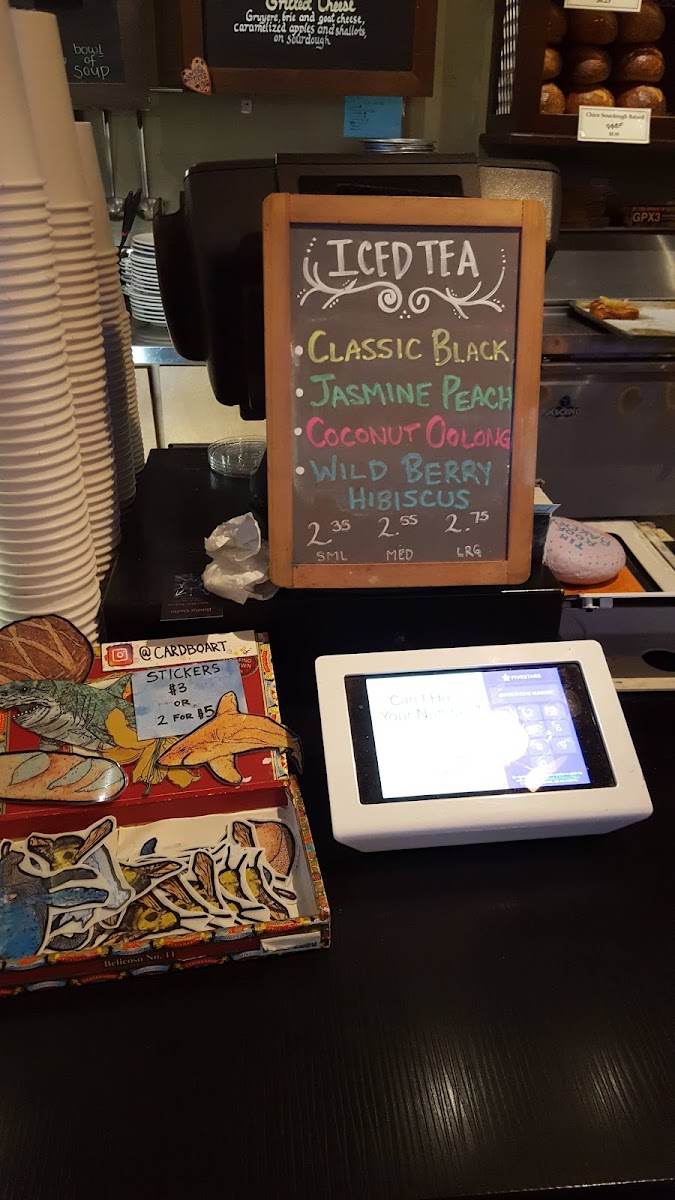 Grilled Cheese
Gruyere, brie and goat cheese,
caramelized apples and shallots,
on sourdough
bowl
of
soup
Chico Sourdough Batard
GPX3
ICED TEA
• CLASSIC BLACK
• JASMINE PEACH
• COCONUT OOLONG
• WILD BERRY
HIBISCUS
2.35 2.55 2.75
SML MED LRG
@CARDBOART
STICKERS
$3
OR
2 FOR $5
FIVESTARS
Belicoso No. 11